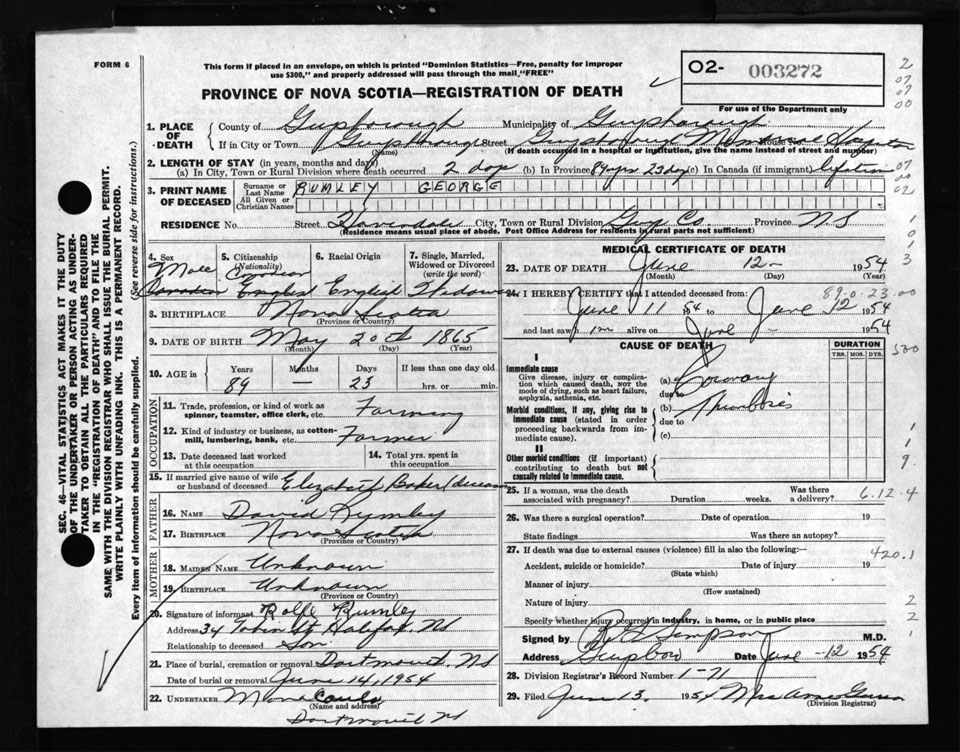 FORM 6
This form if placed in an envelope, on which is printed "Dominion Statistics—Free, penalty for improper
use $300," and properly addressed will pass through the mail "FREE"
O2- 003272
For use of the Department only
PROVINCE OF NOVA SCOTIA—REGISTRATION OF DEATH
1. PLACE OF DEATH County of Guysborough Municipality of Guysborough
If in City or Town Guysborough Street Memorial House No.
(Name) (If death occurred in a hospital or institution, give the name instead of street and number)
2. LENGTH OF STAY (in years, months and days)
(a) In City, Town or Rural Division where death occurred 2 days (b) In Province 89 yrs. 23 days (c) In Canada (if immigrant) lifetime
3. PRINT NAME OF DECEASED Surname or Last Name RUMLEY GEORGE
All Given or Christian Names
RESIDENCE No. Street City, Town or Rural Division Guys. Co. Province N S
(Residence means usual place of abode. Post Office Address for residents in rural parts not sufficient)
4. Sex 5. Citizenship (Nationality) 6. Racial Origin 7. Single, Married, Widowed or Divorced (write the word)
Male Canadian
Canadian English English Widower
8. BIRTHPLACE Nova Scotia
(Province or Country)
9. DATE OF BIRTH May 20th 1865
(Month) (Day) (Year)
10. AGE in Years Months Days If less than one day old
89 — 23 hrs. or min.
OCCUPATION
11. Trade, profession, or kind of work as spinner, teamster, office clerk, etc. Farming
12. Kind of industry or business, as cotton-mill, lumbering, bank, etc. Farmer
13. Date deceased last worked at this occupation 14. Total yrs. spent in this occupation
15. If married give name of wife or husband of deceased Elizabeth Baker
FATHER
16. NAME David Rumley
17. BIRTHPLACE Nova Scotia
(Province or Country)
MOTHER
18. MAIDEN NAME Unknown
19. BIRTHPLACE Unknown
(Province or Country)
20. Signature of informant Rolfe Rumley
Address 34 Tobin St Halifax, NS
Relationship to deceased Son
21. Place of burial, cremation or removal Dartmouth, NS
Date of burial or removal June 14, 1954
22. UNDERTAKER
(Name and address)
Dartmouth NS
MEDICAL CERTIFICATE OF DEATH
23. DATE OF DEATH June 12 - 1954
(Month) (Day)
89.0.23.00
24. I HEREBY CERTIFY that I attended deceased from:
June 11 1954 to June 12 1954
and last saw him alive on June - 1954
CAUSE OF DEATH DURATION
YRS. MOS. DYS.
I
Immediate cause
Give disease, injury or complication which caused death, not the mode of dying, such as heart failure, asphyxia, asthenia, etc.
(a) Coronary
due to
Morbid conditions, if any, giving rise to immediate cause (stated in order proceeding backwards from immediate cause).
(b) Thrombosis
due to
(c)
II
Other morbid conditions (if important) contributing to death but not causally related to immediate cause.
25. If a woman, was the death associated with pregnancy? Duration weeks. Was there a delivery? 6.12.4
26. Was there a surgical operation? Date of operation 19
State findings Was there an autopsy?
27. If death was due to external causes (violence) fill in also the following:— 420.1
Accident, suicide or homicide? Date of injury 19
(State which)
Manner of injury
(How sustained)
Nature of injury
Specify whether injury occurred in industry, in home, or in public place
Signed by Simpson M.D.
Address Date June - 12 1954
28. Division Registrar's Record Number 1-71
29. Filed June 13 1954 Mrs
(Division Registrar)
SEC. 46—VITAL STATISTICS ACT MAKES IT THE DUTY
OF THE UNDERTAKER OR PERSON ACTING AS UNDER-
TAKER TO OBTAIN ALL THE PARTICULARS REQUIRED
IN THE "REGISTRATION OF DEATH" AND TO FILE THE
SAME WITH THE DIVISION REGISTRAR WHO SHALL ISSUE THE BURIAL PERMIT.
WRITE PLAINLY WITH UNFADING INK. THIS IS A PERMANENT RECORD.
Every item of information should be carefully supplied. (See reverse side for instructions.)